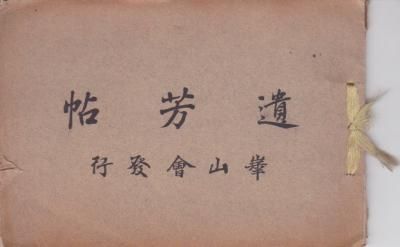 遺芳帖
華山會發行